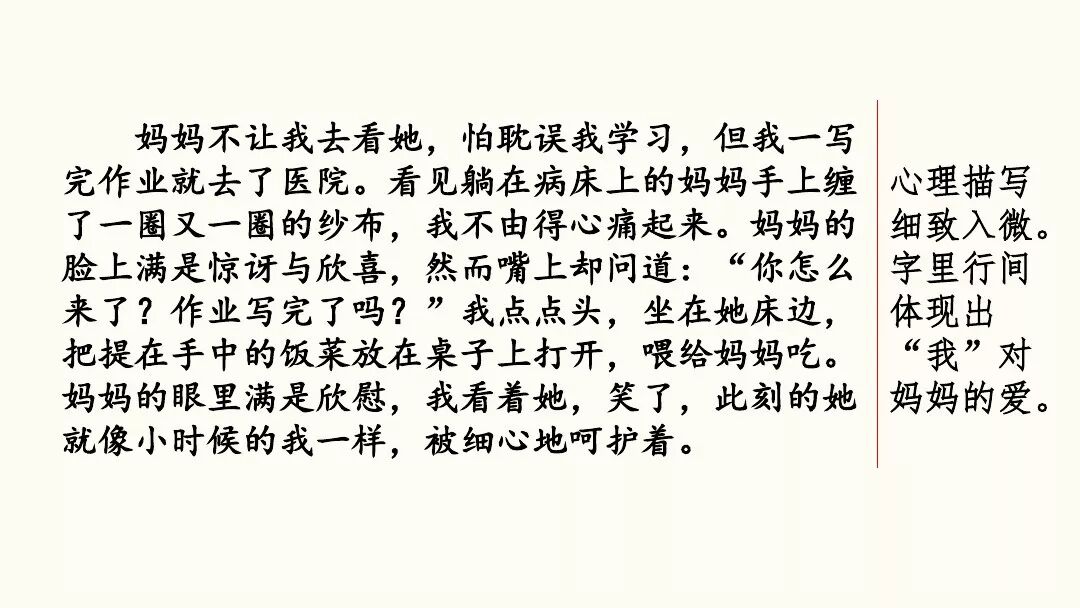 妈妈不让我去看她，怕耽误我学习，但我一写
完作业就去了医院。看见躺在病床上的妈妈手上缠
了一圈又一圈的纱布，我不由得心痛起来。妈妈的
脸上满是惊讶与欣喜，然而嘴上却问道：“你怎么
来了？作业写完了吗？”我点点头，坐在她床边，
把提在手中的饭菜放在桌子上打开，喂给妈妈吃。
妈妈的眼里满是欣慰，我看着她，笑了，此刻的她
就像小时候的我一样，被细心地呵护着。
心理描写
细致入微。
字里行间
体现出
“我”对
妈妈的爱。